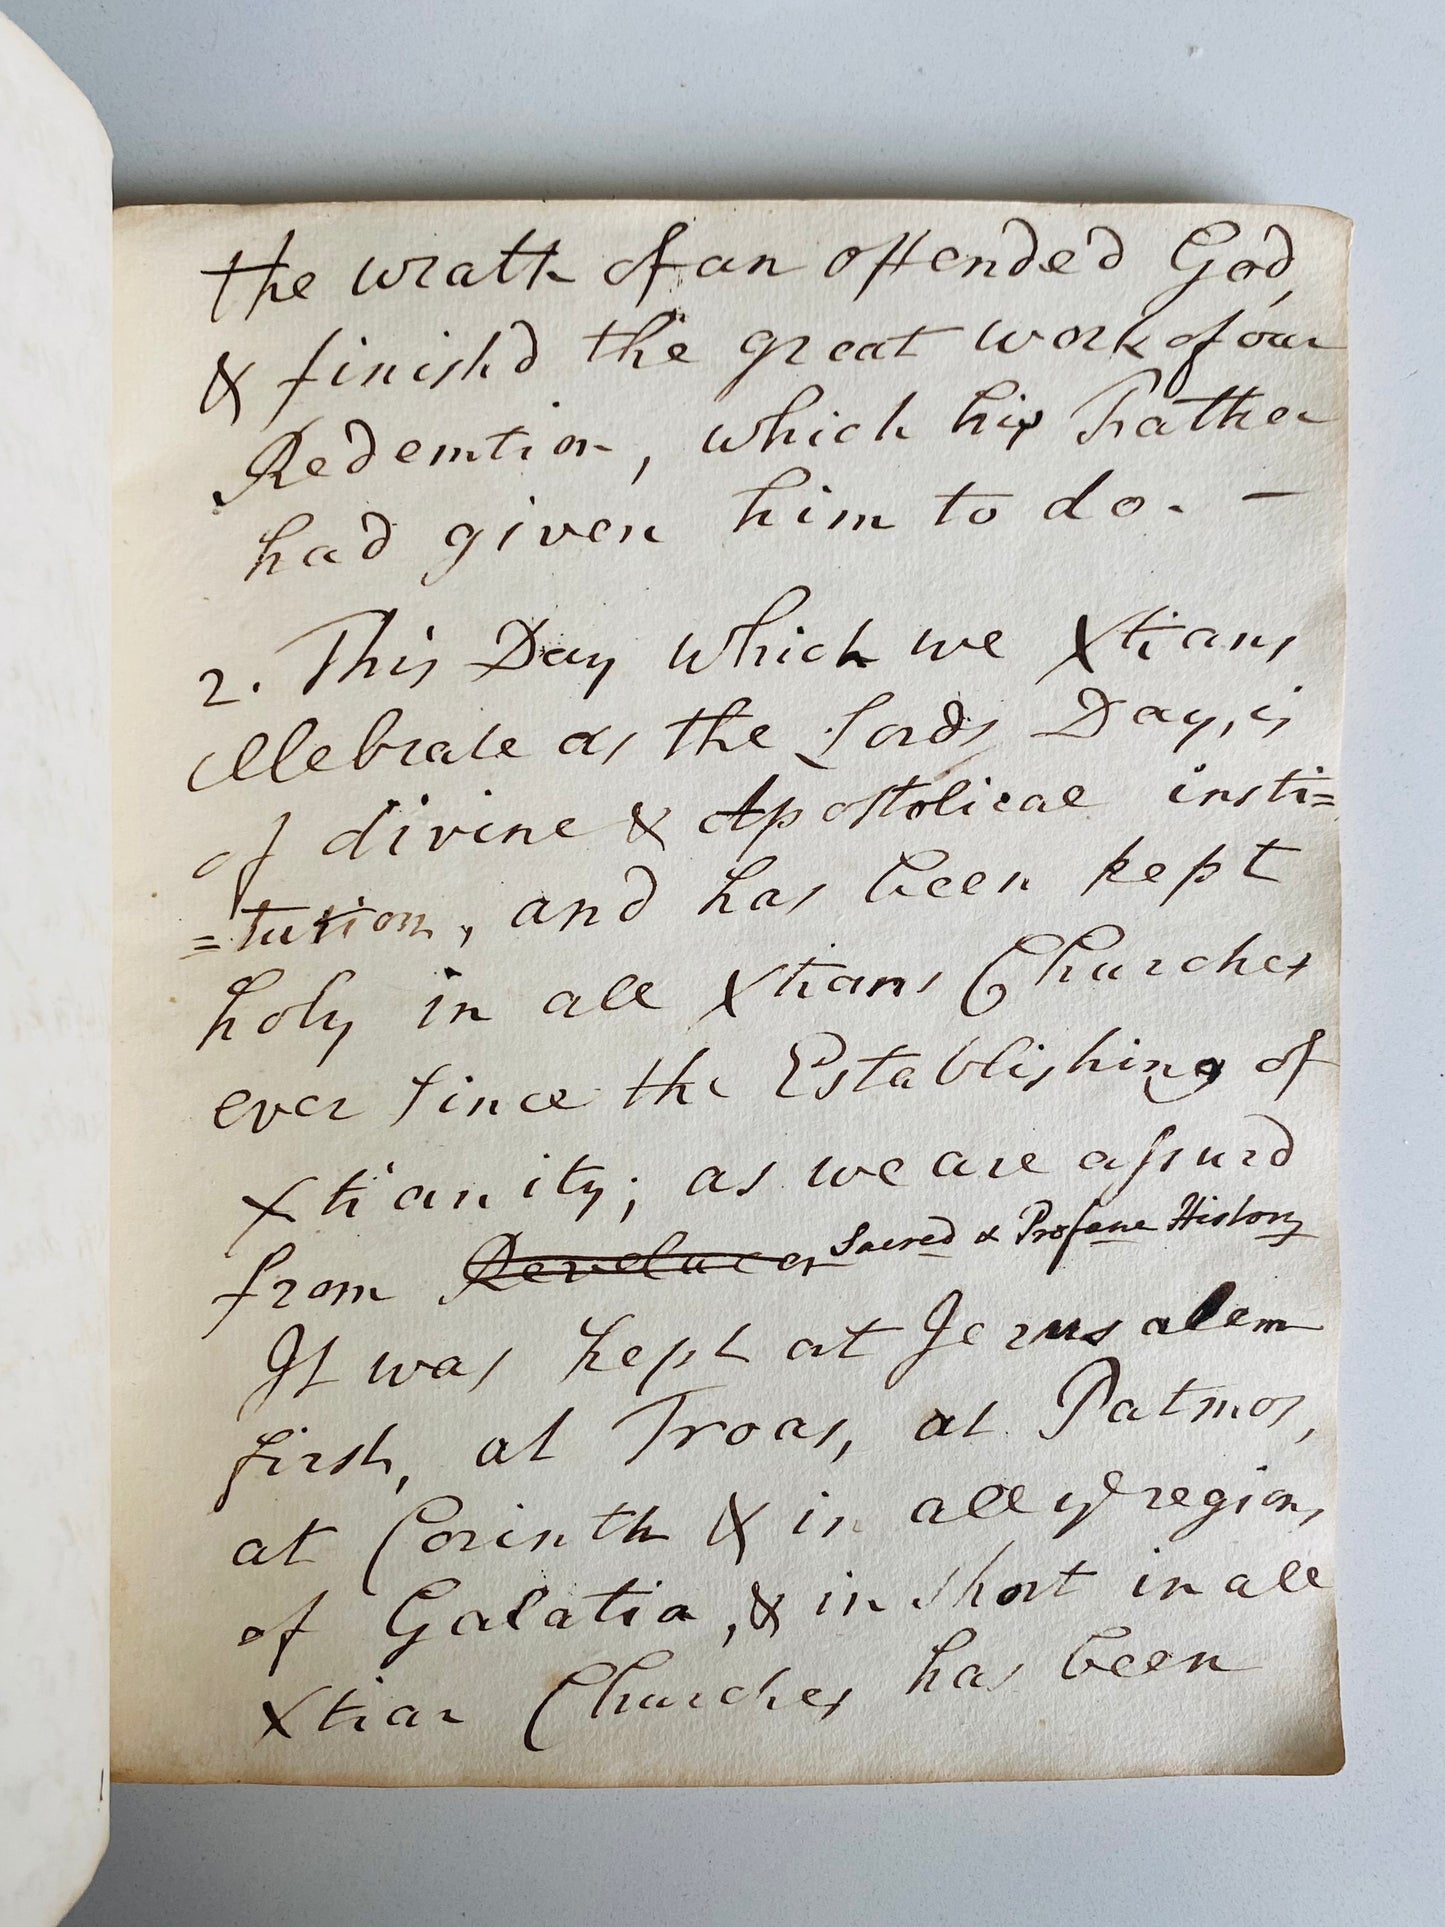 the wrath of an offended God,
& finish'd the great work of our
Redemtion, which his Father
had given him to do. —
2. This Day which we Xtians
cellebrate as the Lords Day, is
of divine & Apostolical insti=
=tution, and has been kept
holy in all Xtians Churches
ever since the Establishing of
Xtianity; as we are assurd
from Sacred & Profane History
It was kept at Jerusalem
first, at Troas, at Patmos,
at Corinth & in all ye regions
of Galatia, & in short in all
Xtian Churches has been